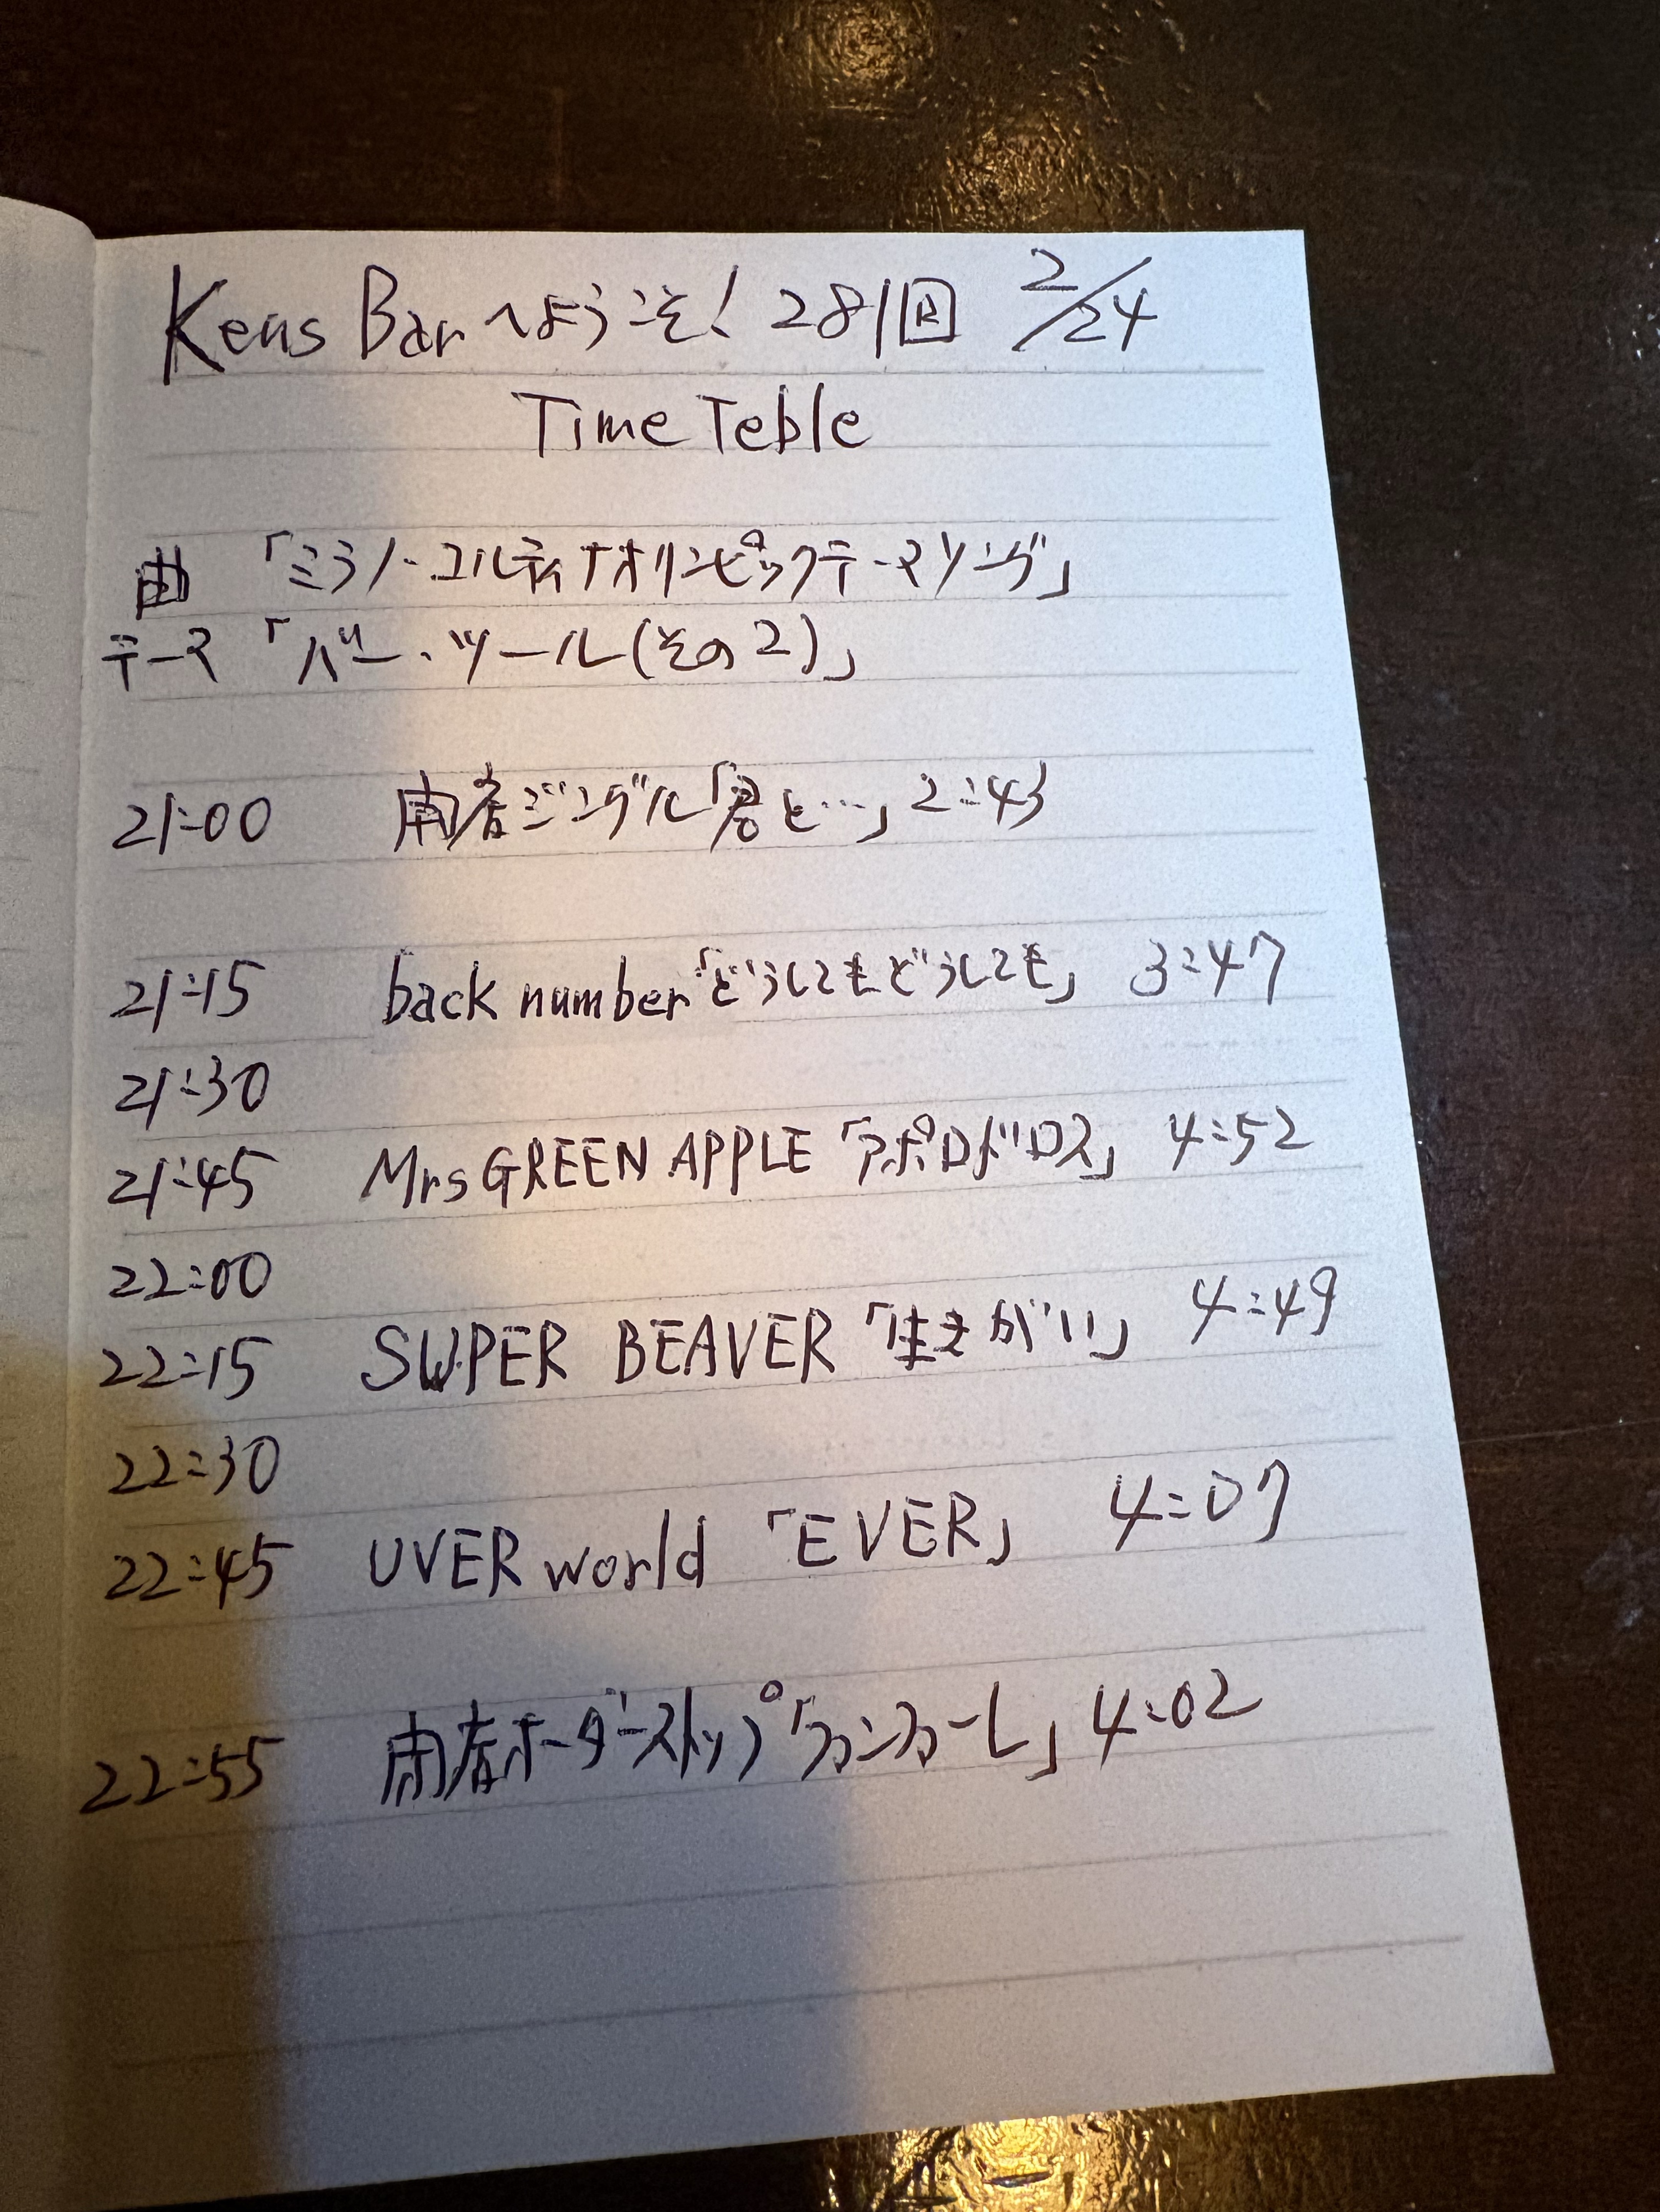 Kens Barへようこそ! 281回 2/24
Time Teble
曲 「ミラノ・コルティナオリンピックテーマソング」
テーマ 「バー・ツール(その2)」
21:00 南春ジングル「君と…」 2:43
21:15 back number「どうしてもどうしても」 3:47
21:30
21:45 Mrs GREEN APPLE 「アポロドロス」 4:52
22:00
22:15 SUPER BEAVER 「生きがい」 4:49
22:30
22:45 UVER world 「EVER」 4:07
22:55 南春ボーダーストップ「ファンファーレ」 4:02